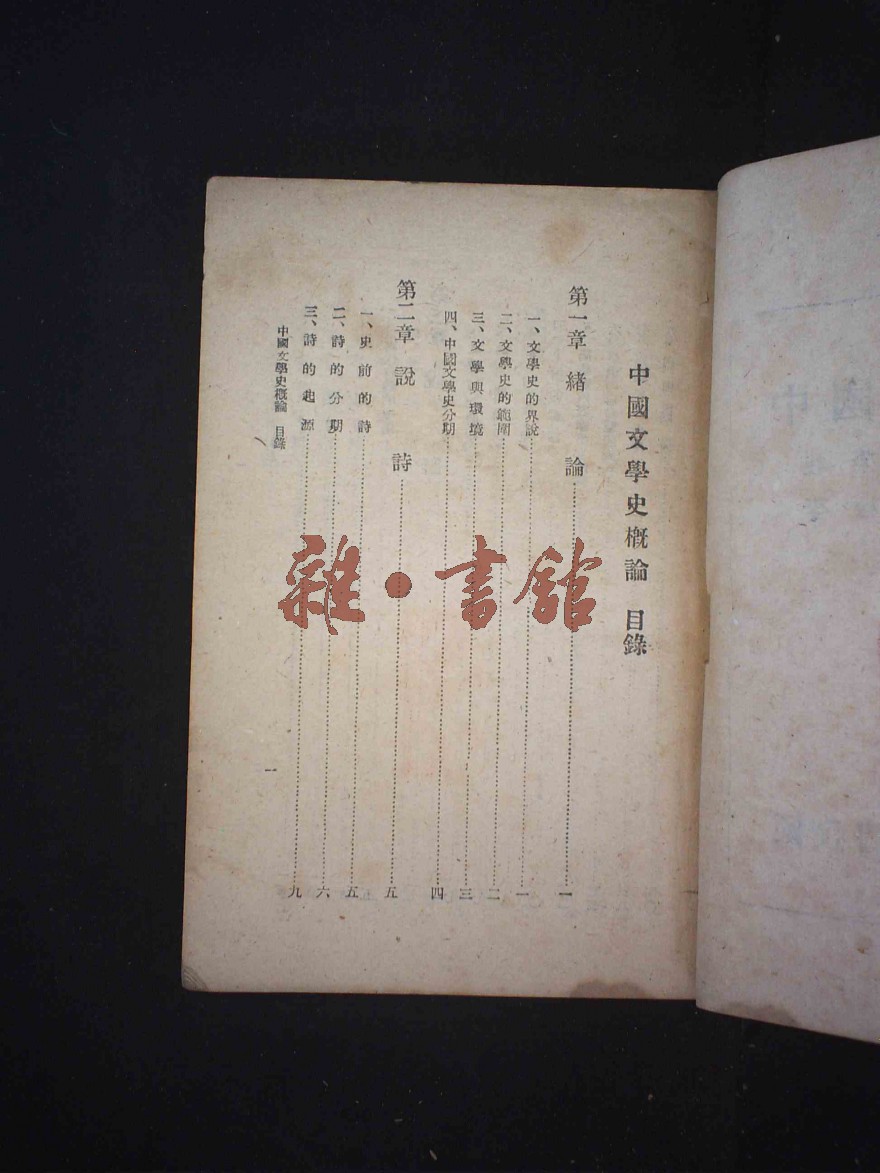 中國文學史概論 目錄
第一章 緒 論……一
一、文學史的界說……一
二、文學史的範圍……二
三、文學與環境……三
四、中國文學史分期……四
第二章 說 詩……五
一、史前的詩……五
二、詩的分期……六
三、詩的起源……九
中國文學史概論 目錄
一
雜·書館